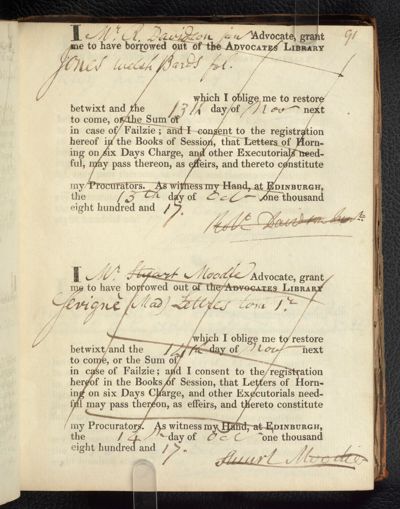 91
I Mr. R. Davidson jun Advocate, grant
me to have borrowed out of the ADVOCATES LIBRARY
Jones Welsh Bards fol.
which I oblige me to restore
betwixt and the 13th day of Nov next
to come, or the Sum of
in case of Failzie; and I consent to the registration
hereof in the Books of Session, that Letters of Horn-
ing on six Days Charge, and other Executorials need-
ful may pass thereon, as effeirs, and thereto constitute
my Procurators. As witness my Hand, at EDINBURGH,
the 13th day of Oct one thousand
eight hundred and 17.
Robt. Davidson
I Mr. Stuart Moodie Advocate, grant
me to have borrowed out of the ADVOCATES LIBRARY
Sevigné (Mad) Lettres tom 1.
which I oblige me to restore
betwixt and the 14th day of Nov next
to come, or the Sum of
in case of Failzie; and I consent to the registration
hereof in the Books of Session, that Letters of Horn-
ing on six Days Charge, and other Executorials need-
ful may pass thereon, as effeirs, and thereto constitute
my Procurators. As witness my Hand, at EDINBURGH,
the 14th day of Oct one thousand
eight hundred and 17.
Stuart Moodie